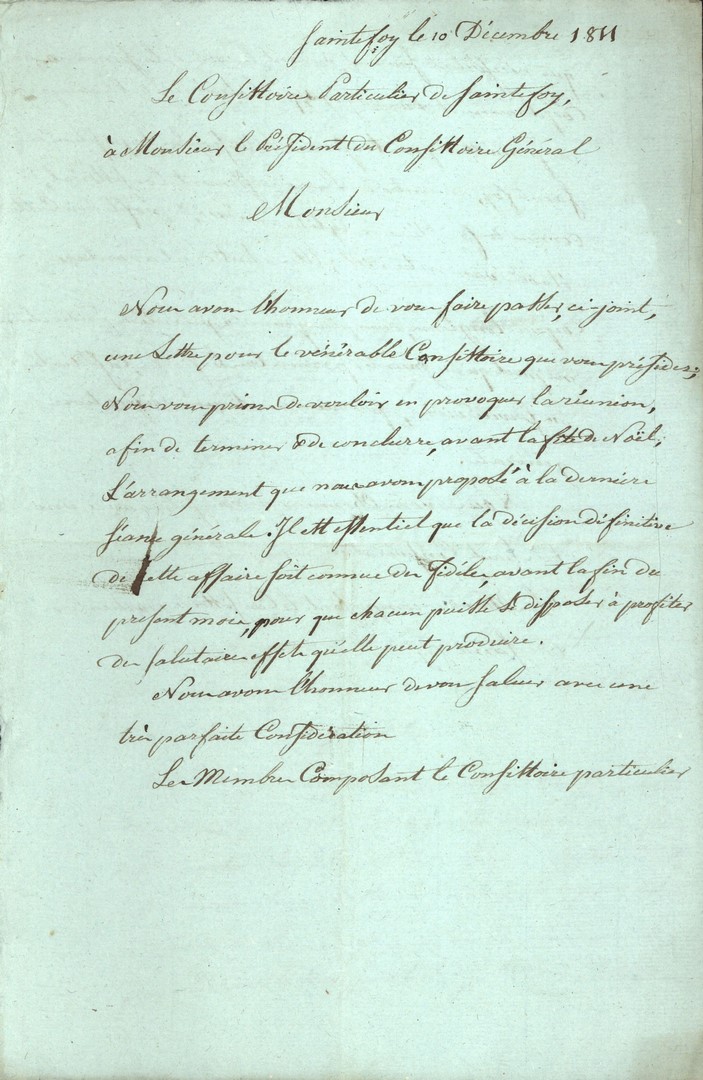 Saintefoy le 10 Décembre 1811
Le Consistoire Particulier de Saintefoy,
à Monsieur le Président du Consistoire Général
Monsieur
Nous avons l'honneur de vous faire passer, ci-joint,
une Lettre pour le vénérable Consistoire que vous présidez;
Nous vous prions de vouloir en provoquer la réunion,
afin de terminer & de conclurre, avant la fête de Noël,
L'arrangement que nous avons proposé à la dernière
séance générale. Il est essentiel que la décision définitive
de cette affaire soit connue des fidèles, avant la fin du
présent mois, pour que chacun puisse se disposer à profiter
des salutaires effets qu'elle peut produire.
Nous avons l'honneur de vous saluer avec une
très parfaite Considération
Les Membres Composant le Consistoire particulier